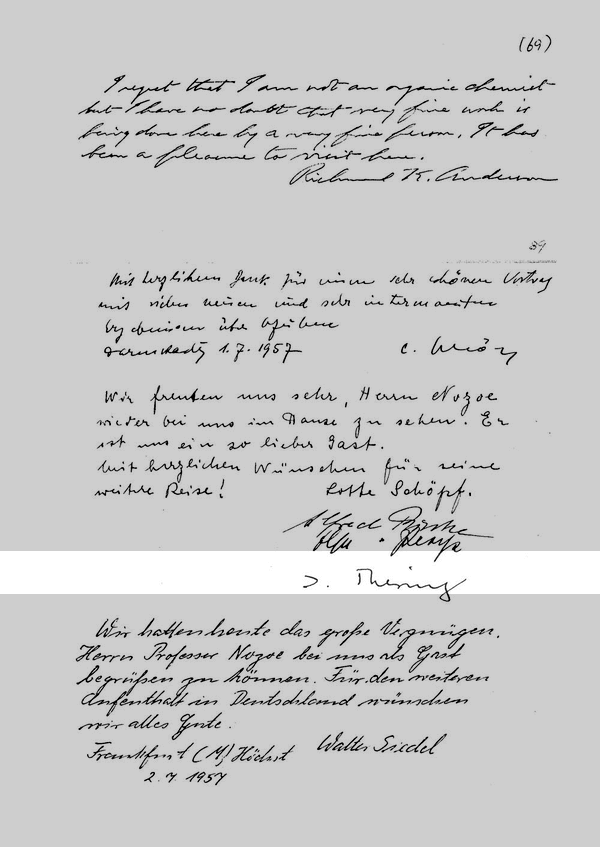 (69)
I regret that I am not an organic chemist
but I have no doubt that very fine work is
being done here by a very fine person. It has
been a pleasure to visit here.
Richard K. Anderson
39
Mit herzlichem Dank für einen sehr schönen Vortrag
mit vielen neuen und sehr interessanten
Ergebnissen über
Darmstadt, 1.7.1957 C. Schöpf
Wir freuten uns sehr, Herrn Nozoe
wieder bei uns im Hause zu sehen. Er
ist uns ein so lieber Gast.
Mit herzlichen Wünschen für seine
weitere Reise! Lotte Schöpf.
Alfred
Wir hatten heute das große Vergnügen,
Herrn Professor Nozoe bei uns als Gast
begrüßen zu können. Für den weiteren
Aufenthalt in Deutschland wünschen
wir alles Gute.
Frankfurt (M) Höchst Walter Siedel
2.7.1957